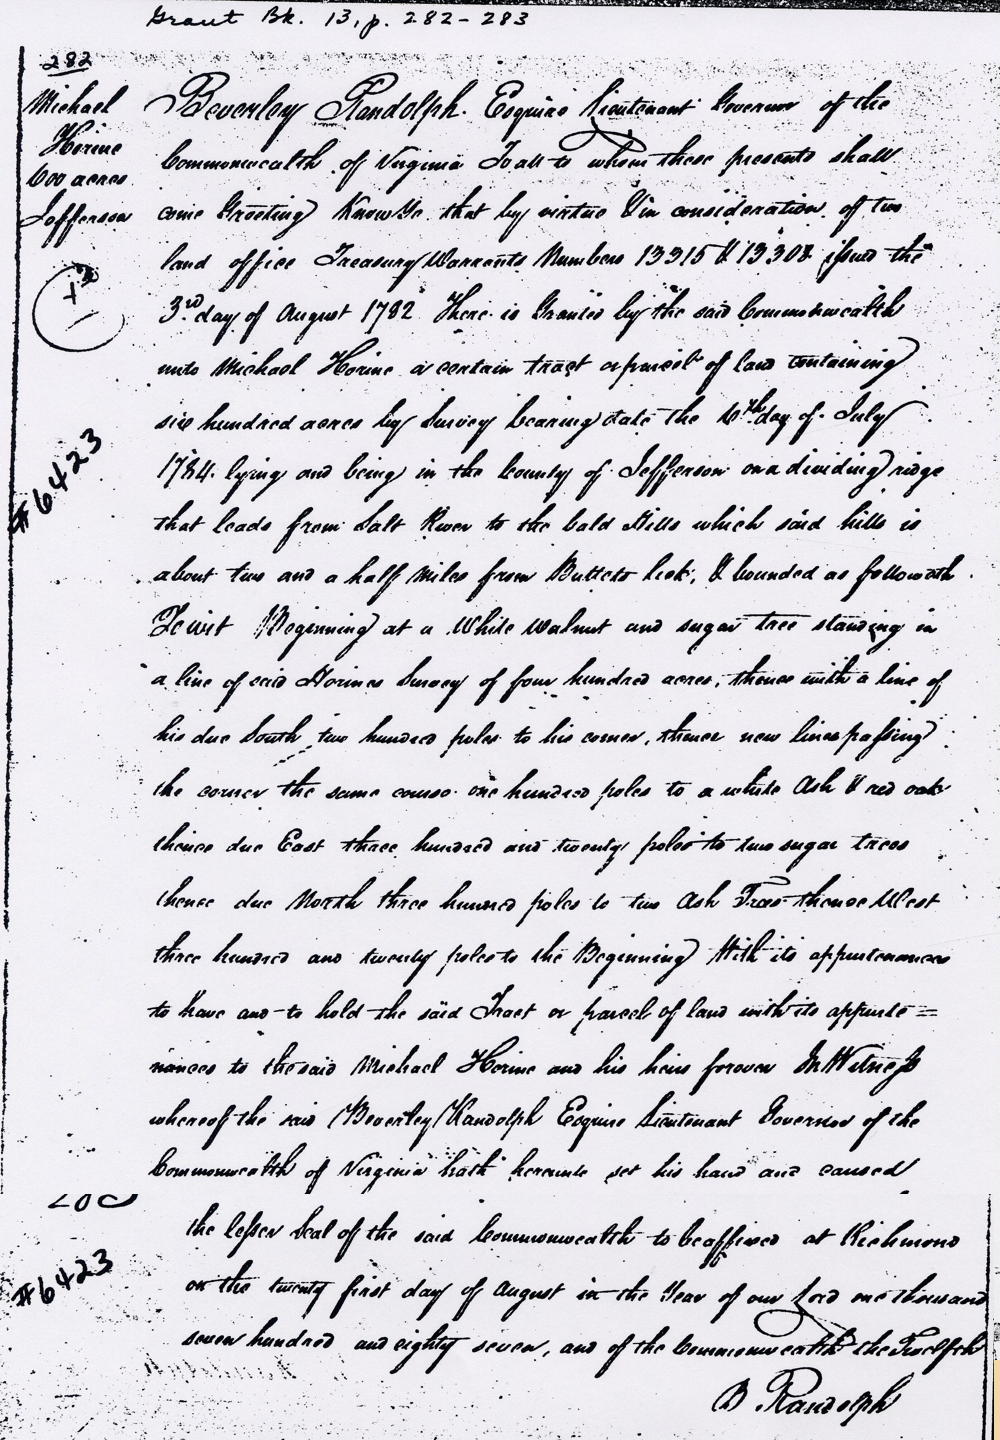 Grant Bk. 13, p. 282-283
282
Michael
Horine
600 acres
Jefferson
Beverley Randolph Esquire Lieutenant Governor of the
Commonwealth of Virginia To all to whom these presents shall
come Greeting Know Ye that by virtue & in consideration of two
land office Treasury Warrants Numbers 13315 & 13308 issued the
3rd day of August 1782 There is Granted by the said Commonwealth
unto Michael Horine a certain tract or parcel of land containing
six hundred acres by Survey bearing date the day of July
1784 lying and being in the County of Jefferson on a dividing ridge
that leads from Salt River to the bald Hills which said hills is
about two and a half Miles from lick, & bounded as followeth
Towit Beginning at a White Walnut and sugar tree standing in
a line of said Horines Survey of four hundred acres, thence with a line of
his due South two hundred poles to his corner, thence new lines passing
the corner the same course one hundred poles to a white Ash & red oak
thence due East three hundred and twenty poles to two sugar trees
thence due North three hundred poles to two Ash Trees thence West
three hundred and twenty poles to the Beginning With its appurtenances
to have and to hold the said Tract or parcel of land with its appurte=
nances to the said Michael Horine and his heirs forever In Witness
whereof the said Beverley Randolph Esquire Lieutenant Governor of the
Commonwealth of Virginia hath hereunto set his hand and caused
the lesser Seal of the said Commonwealth to be affixed at Richmond
on the twenty first day of August in the Year of our Lord one thousand
seven hundred and eighty seven, and of the Commonwealth the Twelfth
B Randolph
#6423
LOC
#6423